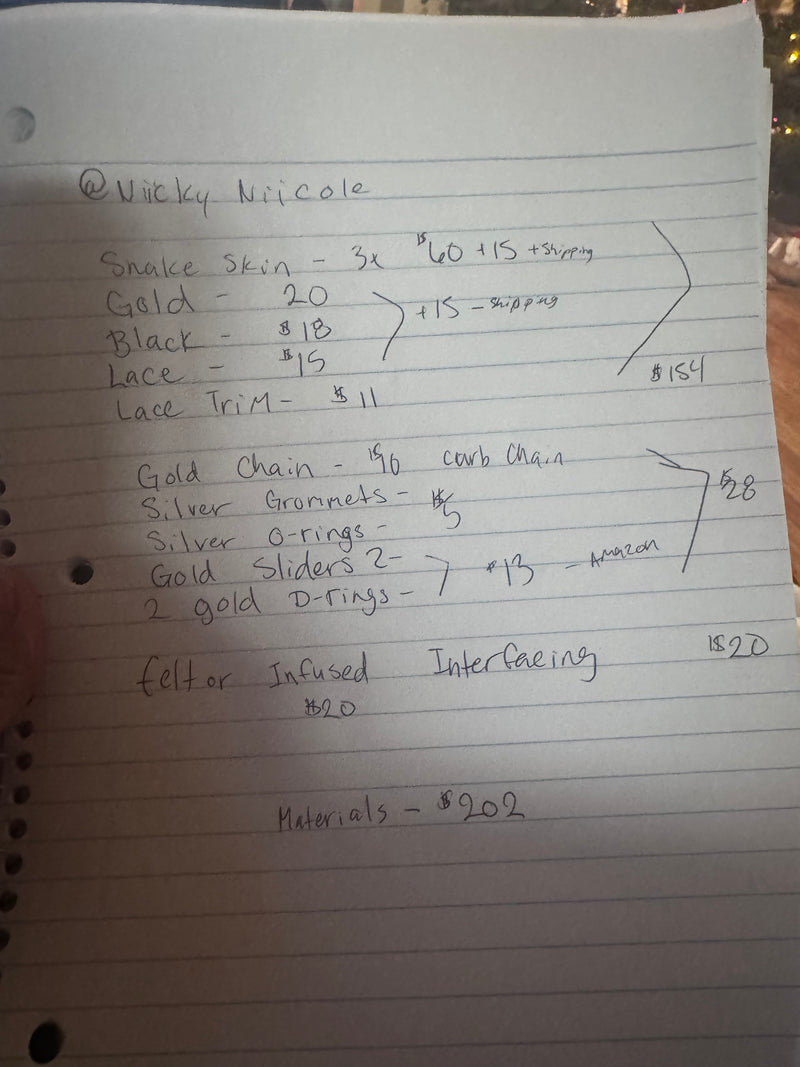 @Niicky Niicole
Snake Skin - 3x $60 + 15 + Shipping
Gold - 20
Black - $18 +15 - Shipping
Lace - $15
Lace TriM - $11 $154
Gold Chain - $10 curb Chain
Silver Grommets - $5 $28
Silver O-rings -
Gold Sliders 2 -
2 gold D-rings - $13 - Amazon
felt or Infused Interfacing $20
$20
Materials - $202